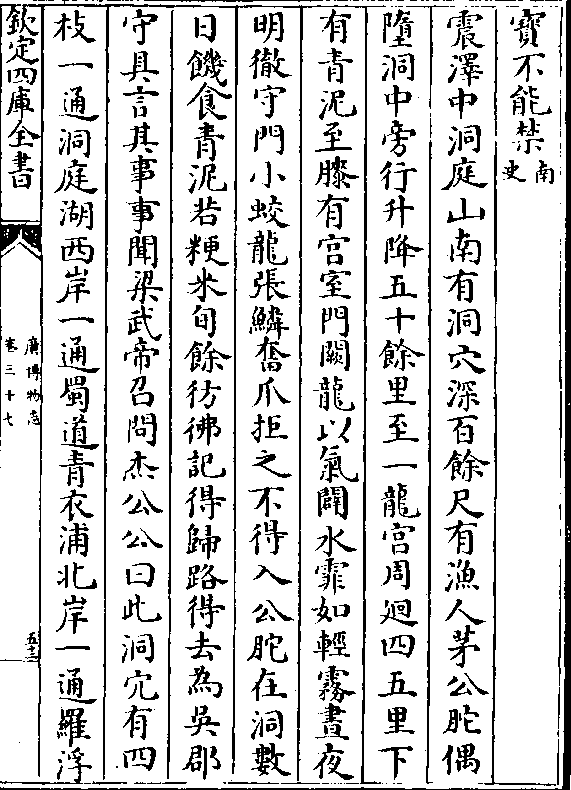 寳不能禁南史
震澤中洞庭山南有洞穴深百餘尺有漁人茅公䑨偶
墮洞中旁行升降五十餘里至一龍宫周廻四五里下
有青泥至膝有宫室門闕龍以氣闢水霏如輕霧晝夜
明徹守門小蛟龍張鱗奮爪拒之不得入公䑨在洞數
日饑食青泥若粳米旬餘彷彿記得歸路得去為吳郡
守具言其事事聞梁武帝召問杰公公曰此洞穴有四
枝一通洞庭湖西岸一通蜀道青衣浦北岸一通羅浮
欽定四庫全書
廣博物志
卷三十七